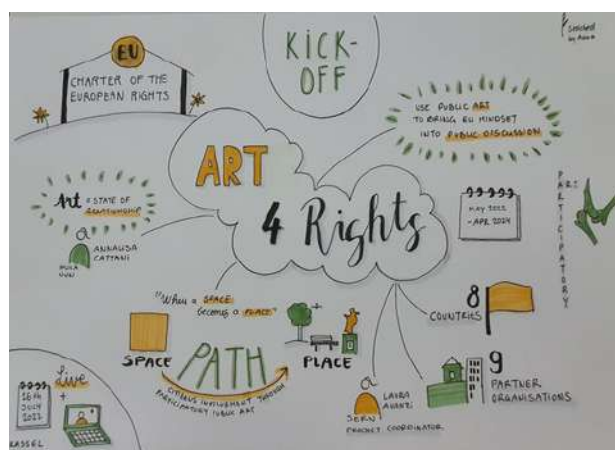 EU
CHARTER OF THE
EUROPEAN RIGHTS
KICK-
OFF
Sketched
by Anna
USE PUBLIC ART
TO BRING EU MINDSET
INTO PUBLIC DISCUSSION
ART
4 Rights
Art = STATE OF
RELATIONSHIP
ANNALISA
CATTANI
MAY 2022
- APR 2024
PARTICIPATORY
ART
"When a SPACE
becomes a PLACE"
SPACE
PATH
PLACE
CITIZENS INVOLVEMENT THROUGH
PARTICIPATORY PUBLIC ART
8
COUNTRIES
9
PARTNER
ORGANISATIONS
LAURA
AVANZI
SERN
PROJECT COORDINATOR
live
+
26th
JULY
2022